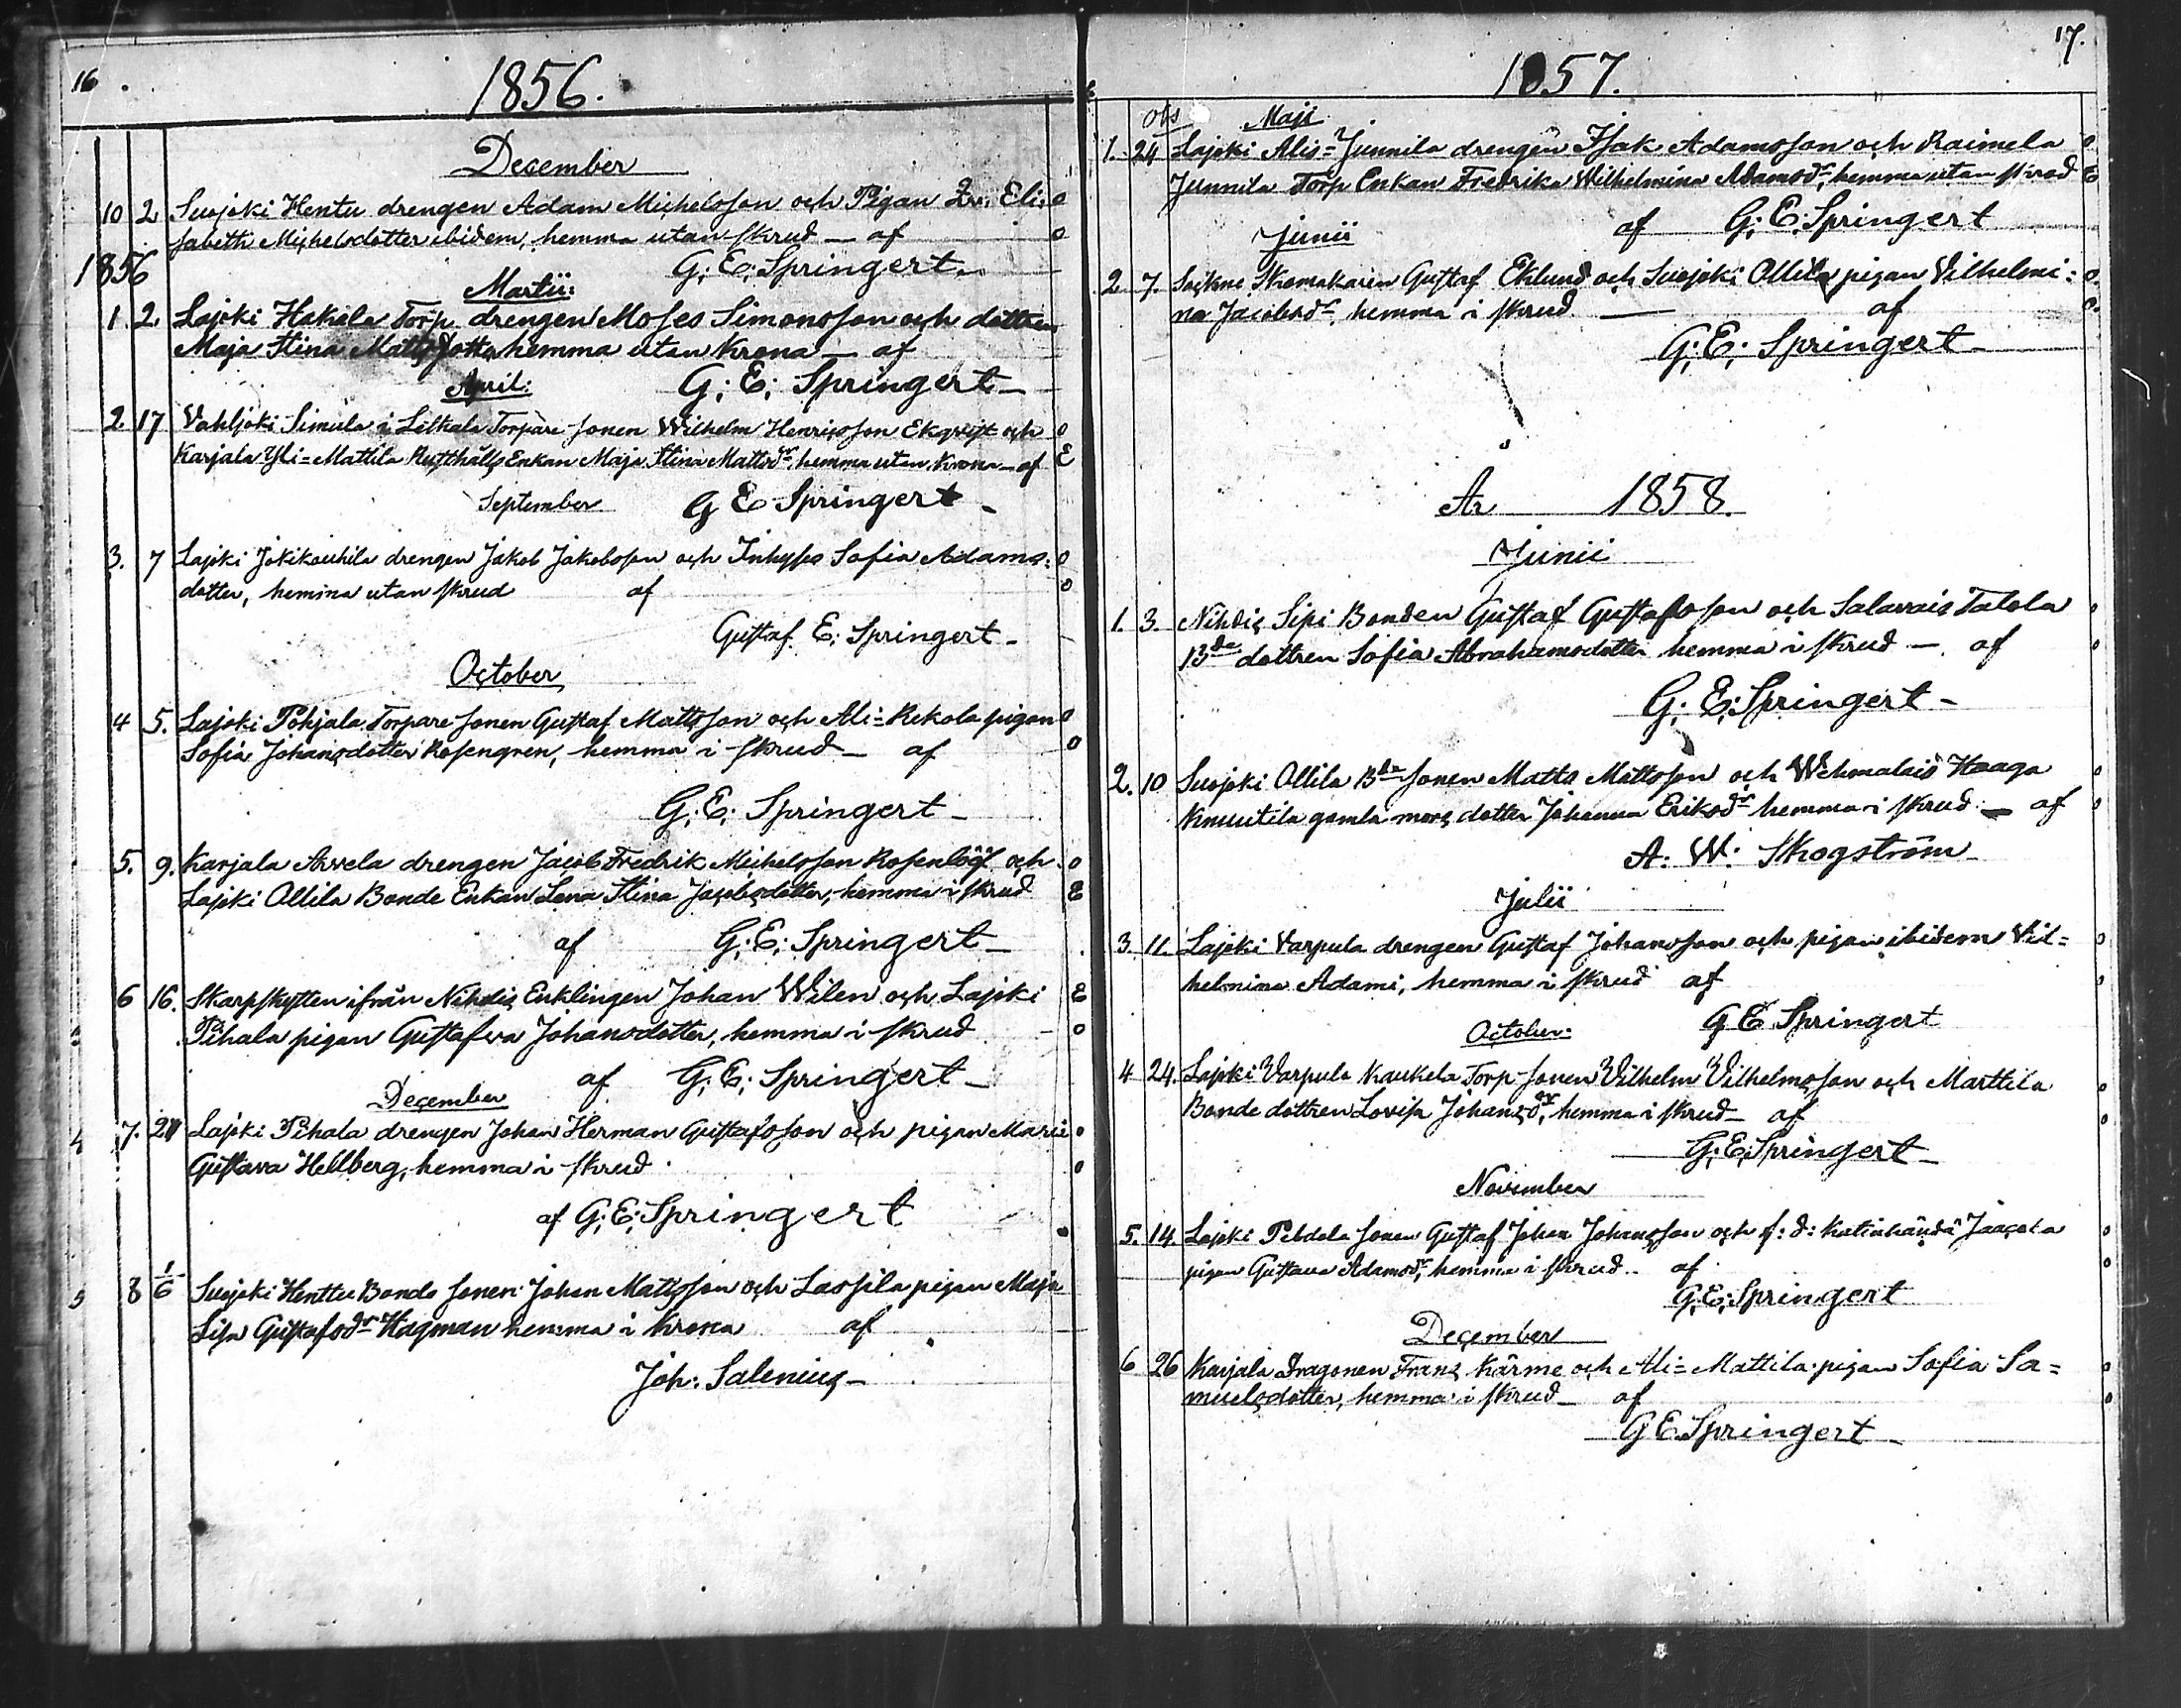 16
1856.
December
10 2 Suojoki Hentu drengen Adam Michelsson och Pigan Eli=
sabeth Michelsdotter ibidem, hemma utan skrud — af
G: E: Springert
1856
Martii:
1. 2 Lajoki Hakala Torp drengen Moses Simonsson och dottren
Maja Stina Mattsdotter hemma utan Krona — af
G: E: Springert —
April:
2. 17 Vahljoki Simula i Letkala Torpare sonen Wilhelm Henricsson Ekqvist och
Karjala Yli=Mattila Rusthålls Enkan Maja Stina Mattsdr, hemma utan Krona — af
G E Springert —
September
3. 7 Lajoki Jokikouhila drengen Jakob Jakobsson och Inhyses Sofia Adams=
dotter, hemma utan skrud af
Gustaf. E: Springert —
October
4 5. Lajoki Pohjala Torpare sonen Gustaf Mattsson och Ali=Rekola pigan
Sofia Johansdotter Rosengren, hemma i skrud — af
G: E: Springert —
5. 9. Karjala Arvela drengen Jacob Fredrik Michelsson Rosenlöf och
Lajoki Ollila Bonde Enkan Lena Stina Jacobsdotter, hemma i skrud
af G: E: Springert —
6 16. Skarpskytten ifrån Nihdis Enklingen Johan Wilen och Lajoki
Pihala pigan Gustafva Johansdotter, hemma i skrud
af G: E: Springert —
December
7. 27 Lajoki Pihala drengen Johan Herman Gustafsson och pigan Maria
Gustava Hellberg, hemma i skrud.
af G: E: Springert
8 1/6 Suojoki Henttu Bonde sonen Johan Mattsson och Lassila pigan Maja
Lisa Gustafsdr Hagman hemma i Krona af
Joh: Salenius —
17.
1857.
obs Maji
1. 24 Lajoki Alis=Junnila drengen Isak Adamsson och Raimela
Junnila Torp Enkan Fredrika Wilhelmina Adamsdr, hemma utan skrud
af G: E: Springert
Junii
2 7. Sockne Skomakaren Gustaf Eklund och Suojoki Ollila pigan Vilhelmi=
na Jacobsdr, hemma i skrud — af
G: E: Springert —
Ar 1858.
Junii
1. 3. Nihdis Sipi Bonden Gustaf Gustafsson och Salavais Talola
Bde dottren Sofia Abrahamsdotter hemma i skrud — af
G: E: Springert —
2. 10 Suojoki Ollila Bde sonen Matts Mattsson och Wehmalais Haaga
Knuutila gamla mors dotter Johanna Eriksdr hemma i skrud — af
A: W: Skogström
Julii
3. 11. Lajoki Varpula drengen Gustaf Johansson och pigan ibidem Vil=
helmina Adami, hemma i skrud af
G E Springert
October:
4 24. Lajoki Varpula Kaukela Torp sonen Vilhelm Vilhelmsson och Marttila
Bonde dottren Lovisa Johansdr, hemma i skrud — af
G: E: Springert —
November
5. 14. Lajoki Peldola sonen Gustaf Johan Johansson och f: d: Katinhändä Jaacola
pigan Gustava Adamsdr, hemma i skrud. af
G: E: Springert
December
6 26 Karjala Dragonen Frans Kärme och Ali=Mattila pigan Sofia Sa=
muelsdotter, hemma i skrud — af
G E Springert —